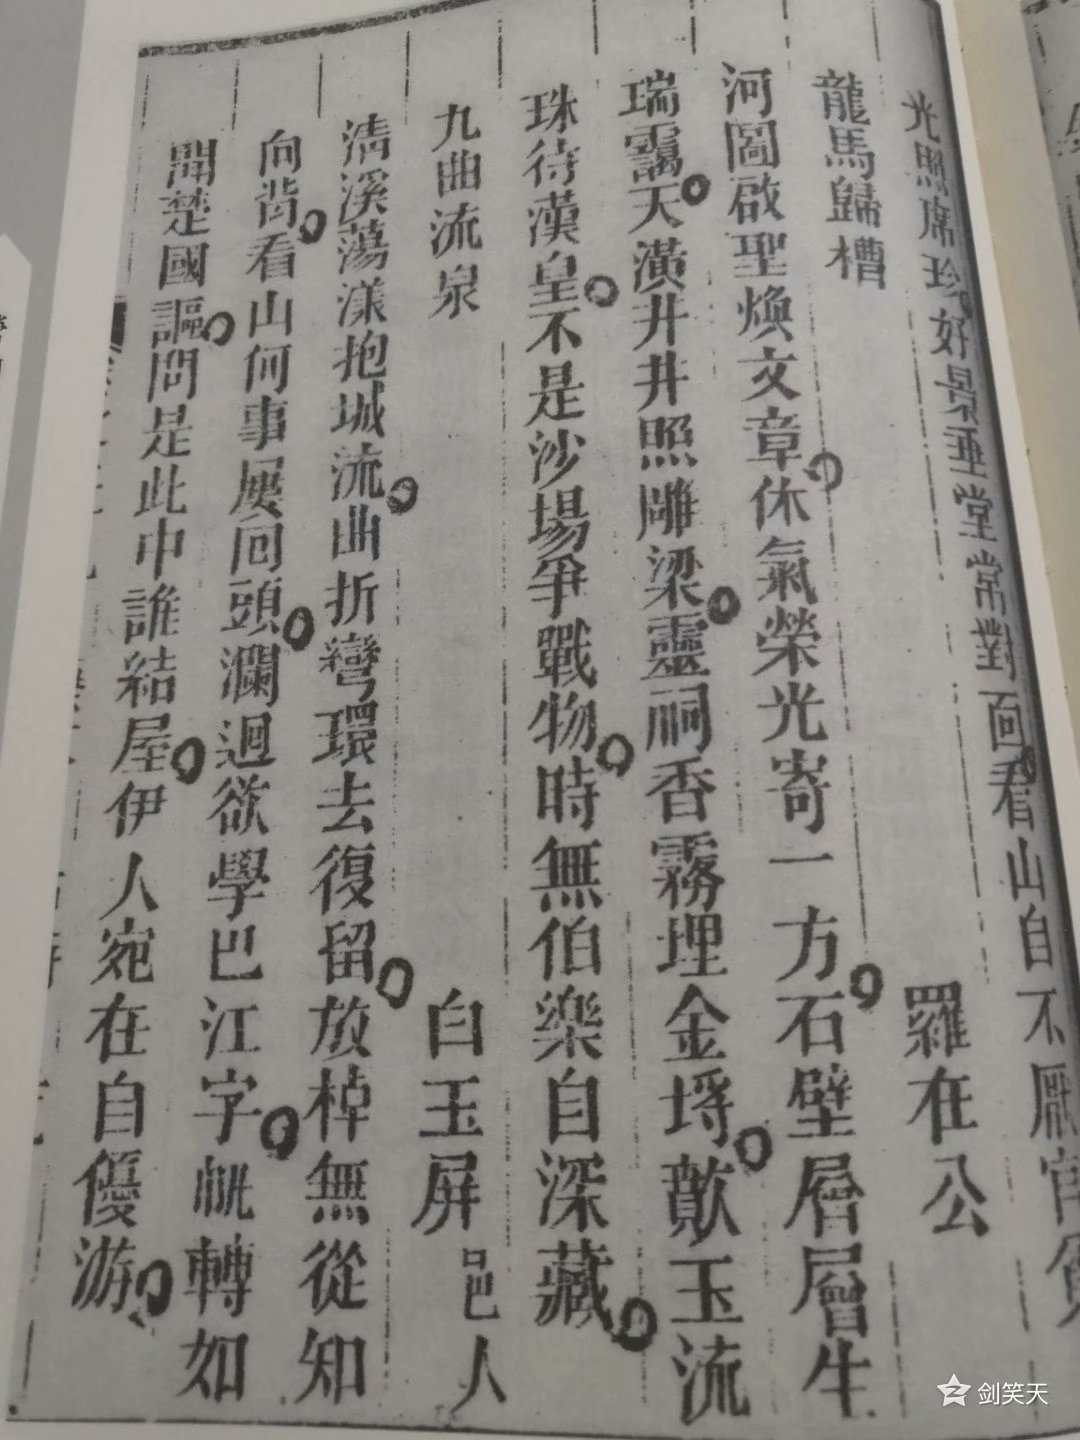 光照席珍好景垂堂常對面看山自不厭官貧
龍馬歸槽
羅在公
河圖啟聖煥文章休氣榮光寄一方石壁層層生
瑞靄天潢井井照雕梁靈祠香霧埋金埒歕玉流
珠待漢皇不是沙場爭戰物時無伯樂自深藏
九曲流泉
白玉屏 邑人
清溪蕩漾抱城流曲折彎環去復留放棹無從知
向背看山何事屢回頭瀾迴欲學巴江字帆轉如
聞楚國謳問是此中誰結屋伊人宛在自優游
剑笑天